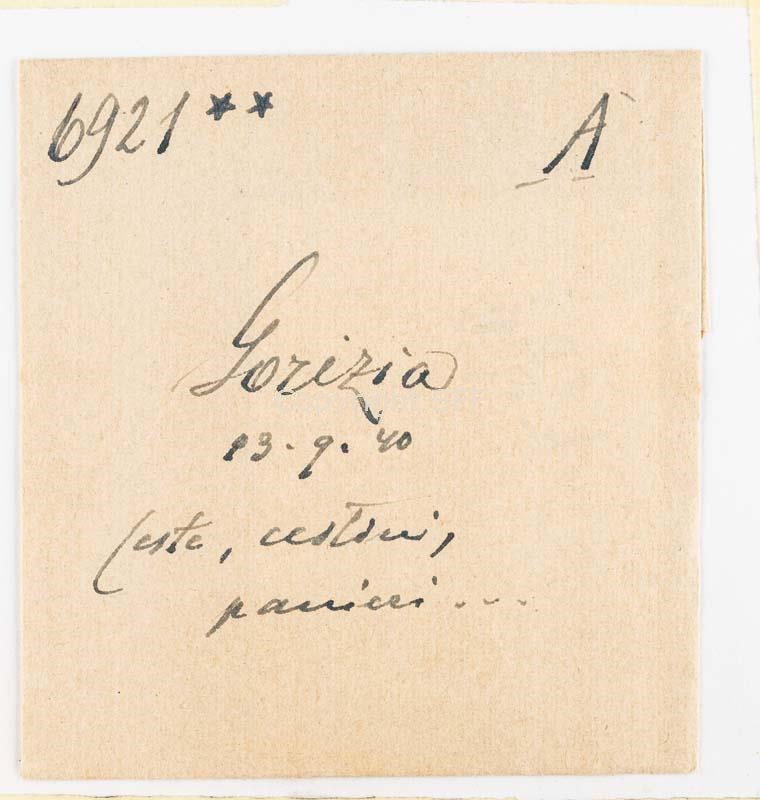 6921 ** A
Gorizia
13 - 9 - 40
Ceste, cestini,
panieri ...